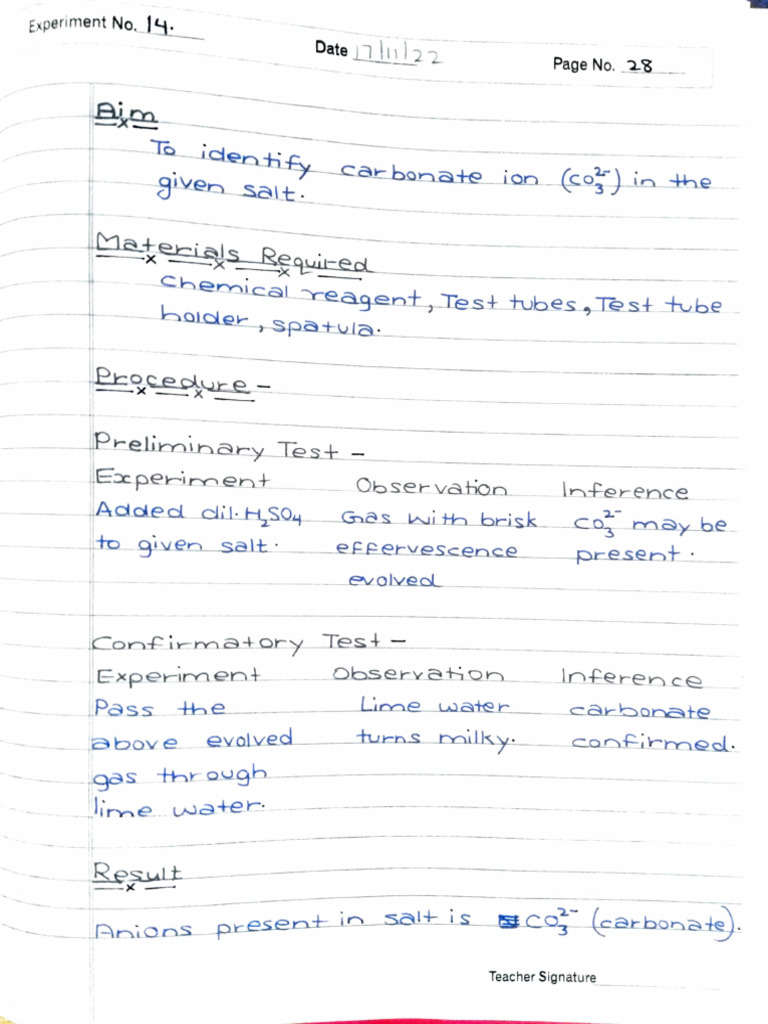 Experiment No. 14.
Date 17/11/22
Page No. 28
Aim
To identify carbonate ion (CO₃²⁻) in the
given salt.
Materials Required
Chemical reagent, Test tubes, Test tube
holder, spatula.
Procedure -
Preliminary Test -
Experiment Observation Inference
Added dil. H₂SO₄ Gas with brisk CO₃²⁻ may be
to given salt. effervescence present.
evolved
Confirmatory Test -
Experiment Observation Inference
Pass the Lime water carbonate
above evolved turns milky. confirmed.
gas through
lime water.
Result
Anions present in salt is CO₃²⁻ (carbonate).
Teacher Signature